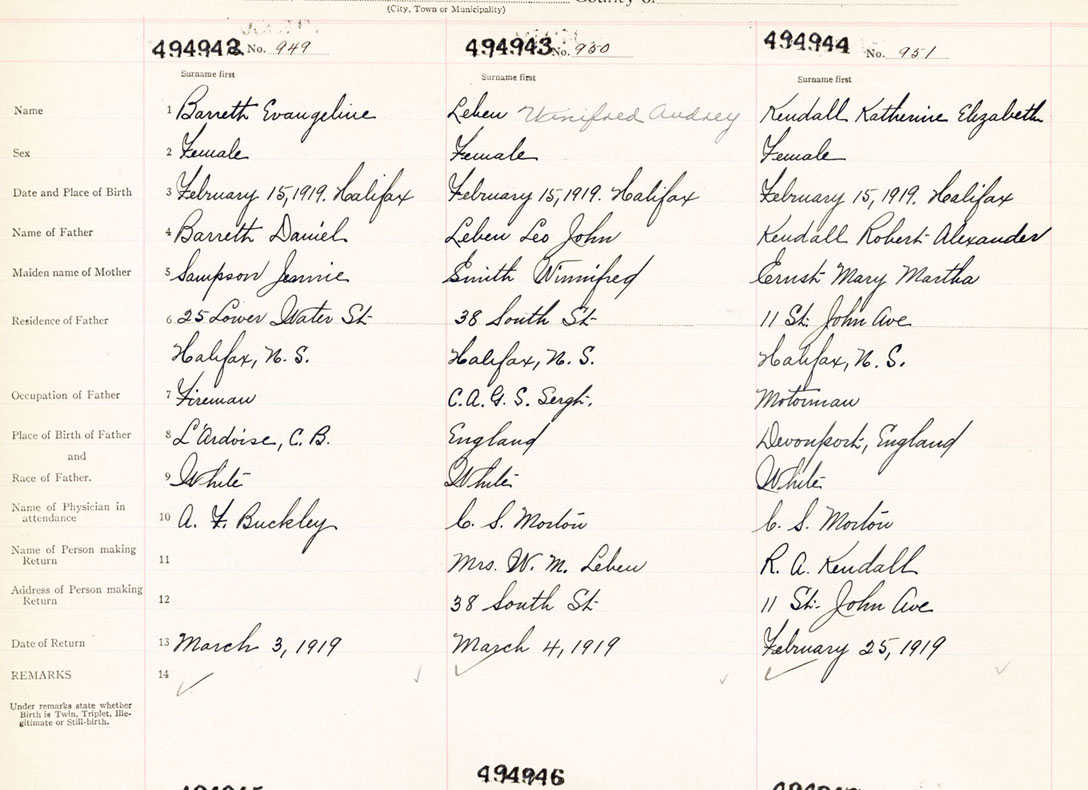 County of
(City, Town or Municipality)
494942 No. 949 494943 No. 950 494944 No. 951
Surname first Surname first Surname first
Name 1 Barreth Evangeline Leben Winifred Audrey Kendall Katherine Elizabeth
Sex 2 Female Female Female
Date and Place of Birth 3 February 15, 1919. Halifax February 15, 1919. Halifax February 15, 1919. Halifax
Name of Father 4 Barreth Daniel Leben Leo John Kendall Robert Alexander
Maiden name of Mother 5 Sampson Jennie Smith Winnifred Ernst Mary Martha
Residence of Father 6 25 Lower Water St 38 South St 11 St. John Ave
Halifax, N. S. Halifax, N. S. Halifax, N. S.
Occupation of Father 7 Fireman C. A. G. S. Sergt. Motorman
Place of Birth of Father 8 L'Ardoise, C. B. England Devonport, England
and
Race of Father. 9 White White White
Name of Physician in attendance 10 A. F. Buckley C. S. Morton C. S. Morton
Name of Person making Return 11 Mrs. W. M. Leben R. A. Kendall
Address of Person making Return 12 38 South St 11 St. John Ave
Date of Return 13 March 3, 1919 March 4, 1919 February 25, 1919
REMARKS 14
Under remarks state whether
Birth is Twin, Triplet, Ille-
gitimate or Still-birth.
494946